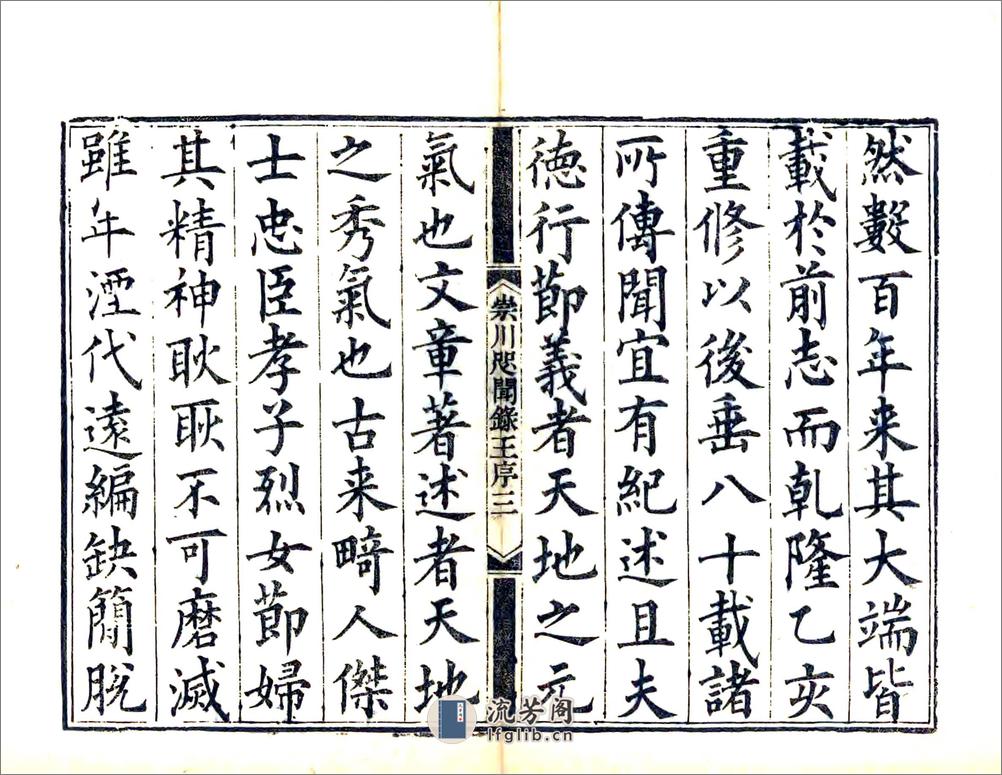 然數百年来其大端皆
載於前志而乹隆乙亥
重修以後垂八十載諸
所傳聞宜有紀述且夫
徳行節義者天地之元
崇川咫聞錄王序三
氣也文章著述者天地
之秀氣也古来畸人傑
士忠臣孝子烈女節婦
其精神耿耿不可磨滅
雖年湮代遠編缺簡脫
流芳阁
lfglib.cn